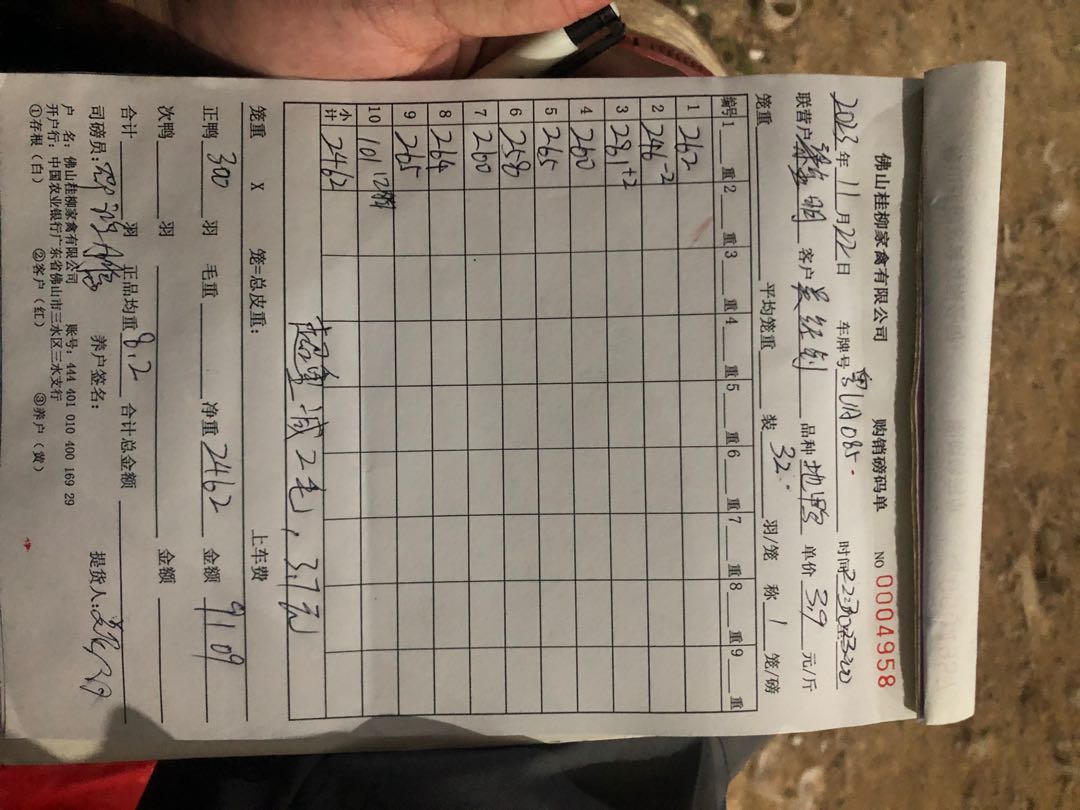 佛山桂柳家禽有限公司 购销磅码单 NO 0004958
2023年11月22日 车牌号 时间22:30 23:20
联营户 明 客户 品种 地鸭 单价3.9元/斤
笼重 平均笼重 装32羽/笼 称1笼/磅
编号 1 重 2 重 3 重 4 重 5 重 6 重 7 重 8 重 9 重
1 262
2 246 -2
3 281 +2
4 260
5 265
6 258
7 260
8 264
9 265
10 101 12只
小计 2462
超重减2毛,3.7元
笼重 X 笼=总皮重: 上车费
正鸭300羽 毛重 净重2462 金额9109
次鸭 羽 金额
合计 羽 正品均重8.2 合计总金额
司磅员: 养户签名: 提货人:
户 名: 佛山桂柳家禽有限公司 账号: 444 401 010 400 169 29
开户行: 中国农业银行广东省佛山市三水区三水支行
①存根(白) ②客户(红) ③养户(黄)